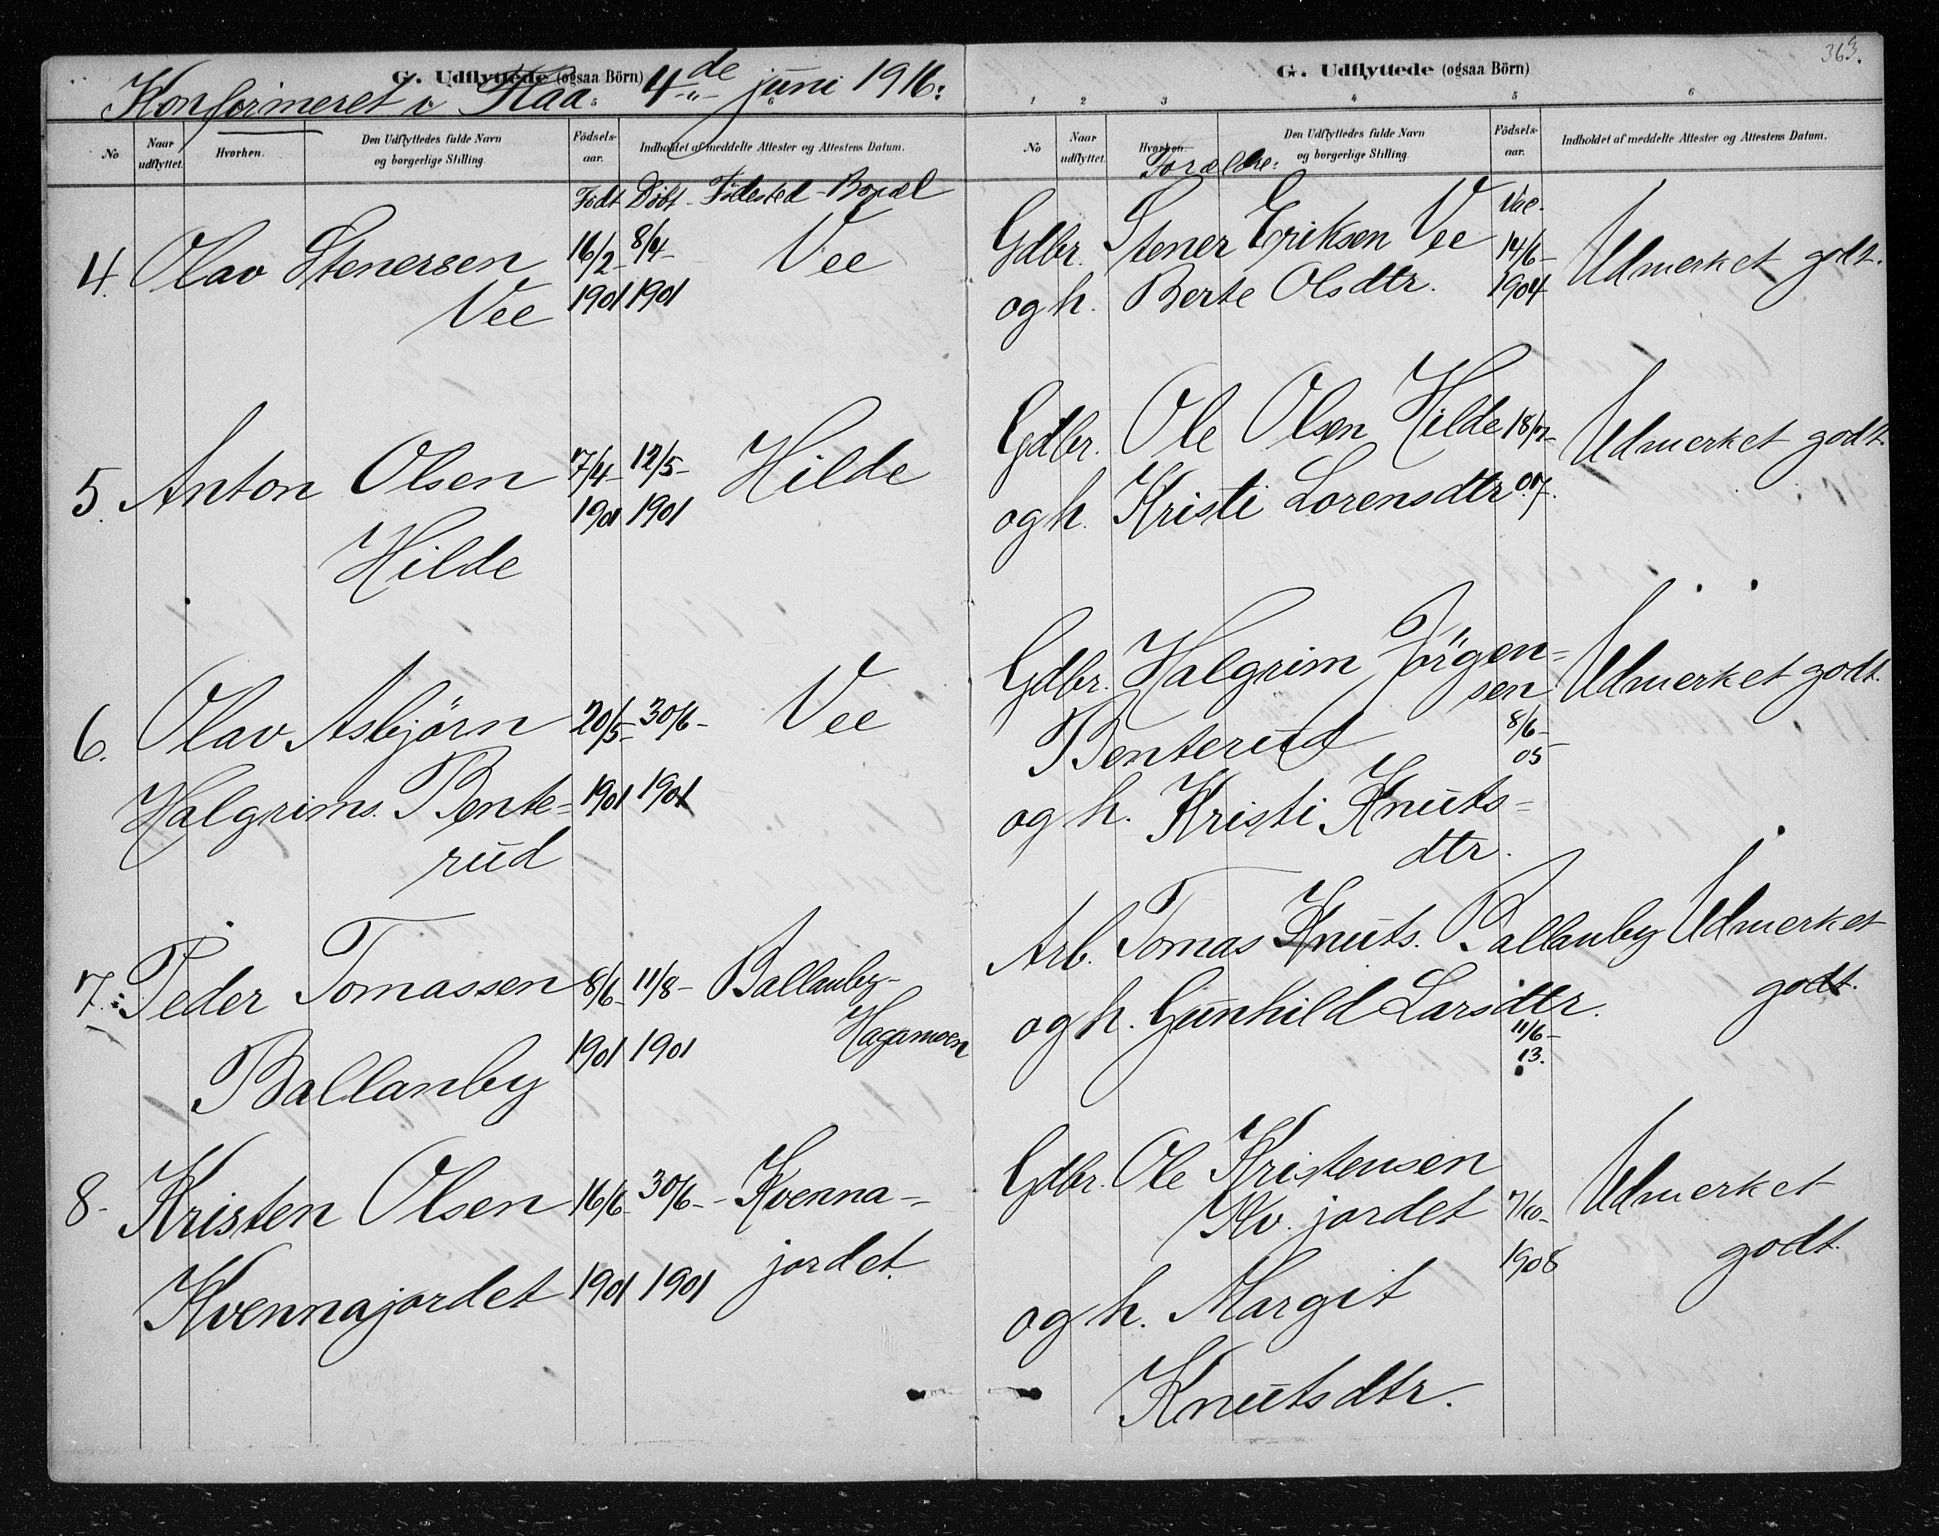 G. Udflyttede (ogsaa Börn)
Konfirmeret i Flaa 4de juni 1916.
No
Naar udflyttet.
Hvorhen.
Den Udflyttedes fulde Navn og borgerlige Stilling.
Fødselsaar.
Indholdet af meddelte Attester og Attestens Datum.
Født Døbt - Fødested - Bopæl
4. Olav Stenersen 16/2- 8/4- Vee
Vee 1901 1901
5. Anton Olsen 7/4- 12/5- Hilde
Hilde 1901 1901
6. Olav Asbjörn 20/5- 30/6- Vee
Halgrims. Bente= 1901 1901
rud
7. Peder Tomassen 8/6- 11/8- Ballanby-
Hagamoen
Ballanby 1901 1901
8. Kristen Olsen 16/6- 30/6- Kvenna-
Kvennajordet 1901 1901 jordet.
363.
G. Udflyttede (ogsaa Börn)
1 2 3 4 5 6
No
Naar udflyttet.
Hvorhen.
Den Udflyttedes fulde Navn og borgerlige Stilling.
Fødselsaar.
Indholdet af meddelte Attester og Attestens Datum.
Forældre: Vac.
Gdbr. Stener Eriksen Vee 14/6- Udmerket godt.
og h. Berte Olsdtr. 1904
Gdbr. Ole Olsen Hilde 18/7- Udmerket godt.
og h. Kristi Lorensdtr 07.
Gdbr. Halgrim Jörgen=
sen Udmerket godt.
Benterud 8/6-
05
og h. Kristi Knuts=
dtr.
Arb. Tomas Knuts. Ballanby Udmerket
og h. Gunhild Larsdtr. godt.
11/6-
13.
Gdbr. Ole Kristensen Udmerket
Kv. jordet 7/10- godt.
1908
og h. Margit
Knutsdtr.